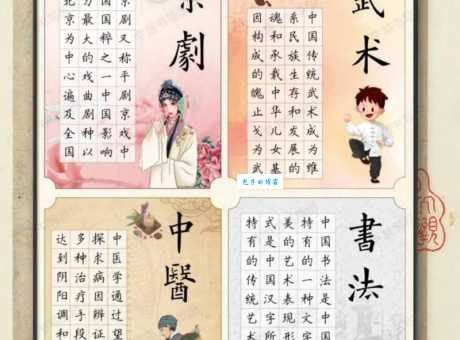 京劇
京剧又称平剧京戏中
国国粹之一中国影响
力最大的戏曲剧种以
北京为中心遍及全国
武术
中国传统武术成为维
系民族生存和发展的
魂和承载中华儿女基
因构成的魄止戈为武
包子的博客
中醫
中医学通过望
探求病因辩证
多种治疗手段
达到阴阳调和
書法
中国书法是中
特有的一种文字
美的艺术表现形
式是中国汉字所
特有的传统艺术